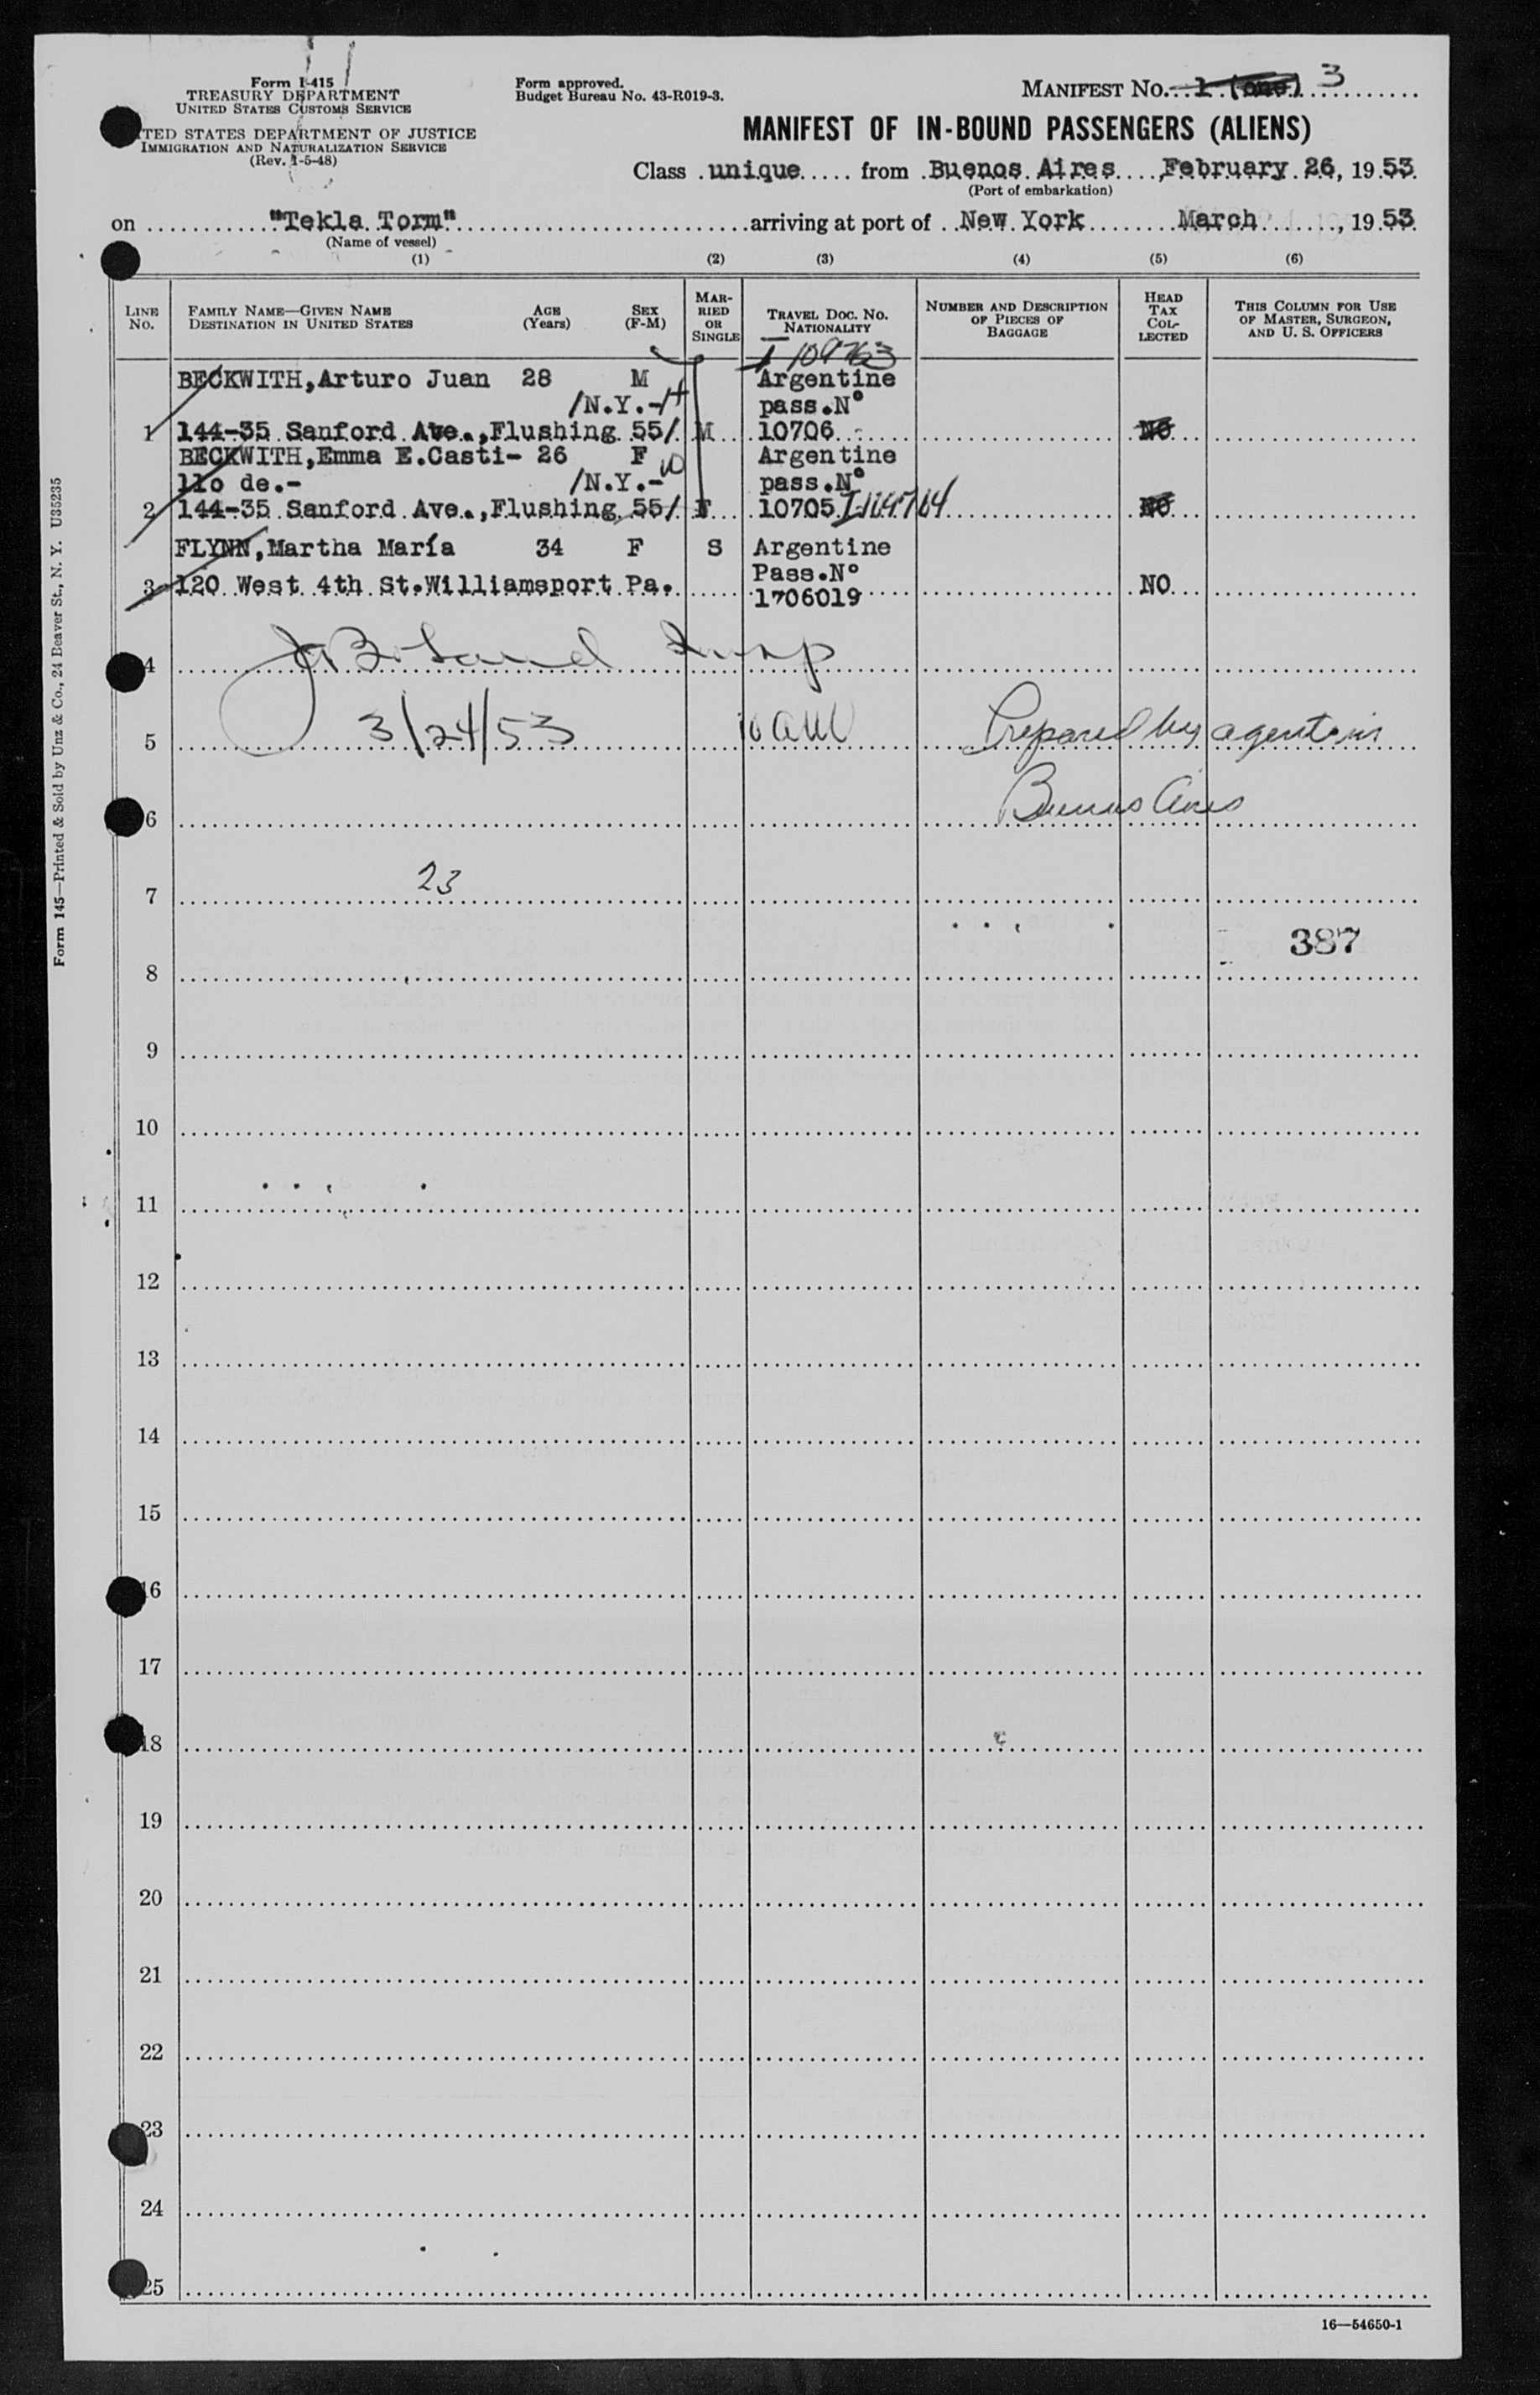 Form I-415
TREASURY DEPARTMENT
UNITED STATES CUSTOMS SERVICE
TED STATES DEPARTMENT OF JUSTICE
IMMIGRATION AND NATURALIZATION SERVICE
(Rev. 1-5-48)
Form approved.
Budget Bureau No. 43-R019-3.
MANIFEST No. 1 (one) 3
MANIFEST OF IN-BOUND PASSENGERS (ALIENS)
Class unique from Buenos Aires, February 26, 1953
(Port of embarkation)
on "Tekla Torm" arriving at port of New York March, 1953
(Name of vessel)
(1) (2) (3) (4) (5) (6)
LINE No. FAMILY NAME—GIVEN NAME DESTINATION IN UNITED STATES AGE (Years) SEX (F-M) MARRIED OR SINGLE TRAVEL DOC. NO. NATIONALITY NUMBER AND DESCRIPTION OF PIECES OF BAGGAGE HEAD TAX COLLECTED THIS COLUMN FOR USE OF MASTER, SURGEON, AND U. S. OFFICERS
BECKWITH, Arturo Juan 28 M Argentine
/N.Y.- pass.Nº
1 144-35 Sanford Ave., Flushing 55/ M 10706 NO
BECKWITH, Emma E.Casti- 26 F Argentine
llo de.- /N.Y.- pass.Nº
2 144-35 Sanford Ave., Flushing 55/ 10705 NO
FLYNN, Martha María 34 F S Argentine
Pass.Nº
3 120 West 4th St.Williamsport Pa. 1706019 NO
4
5 3/24/53 Prepared by agents in
6 Buenos Aires
23
7
387
8
9
10
11
12
13
14
15
16
17
18
19
20
21
22
23
24
25
16—54650-1
Form 145—Printed & Sold by Unz & Co., 24 Beaver St., N. Y. U35235